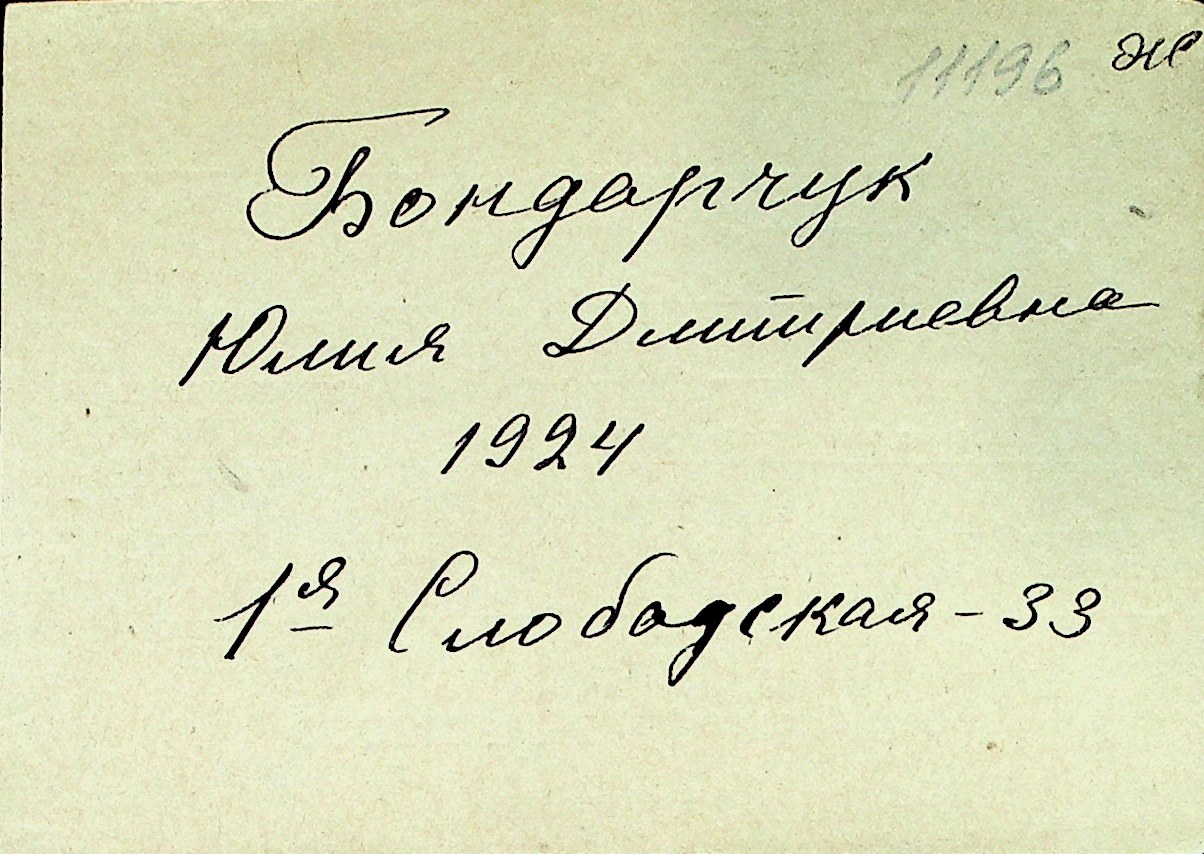 11196 ж
Бондарчук
Юлия Дмитриевна
1924
1я Слободская - 33